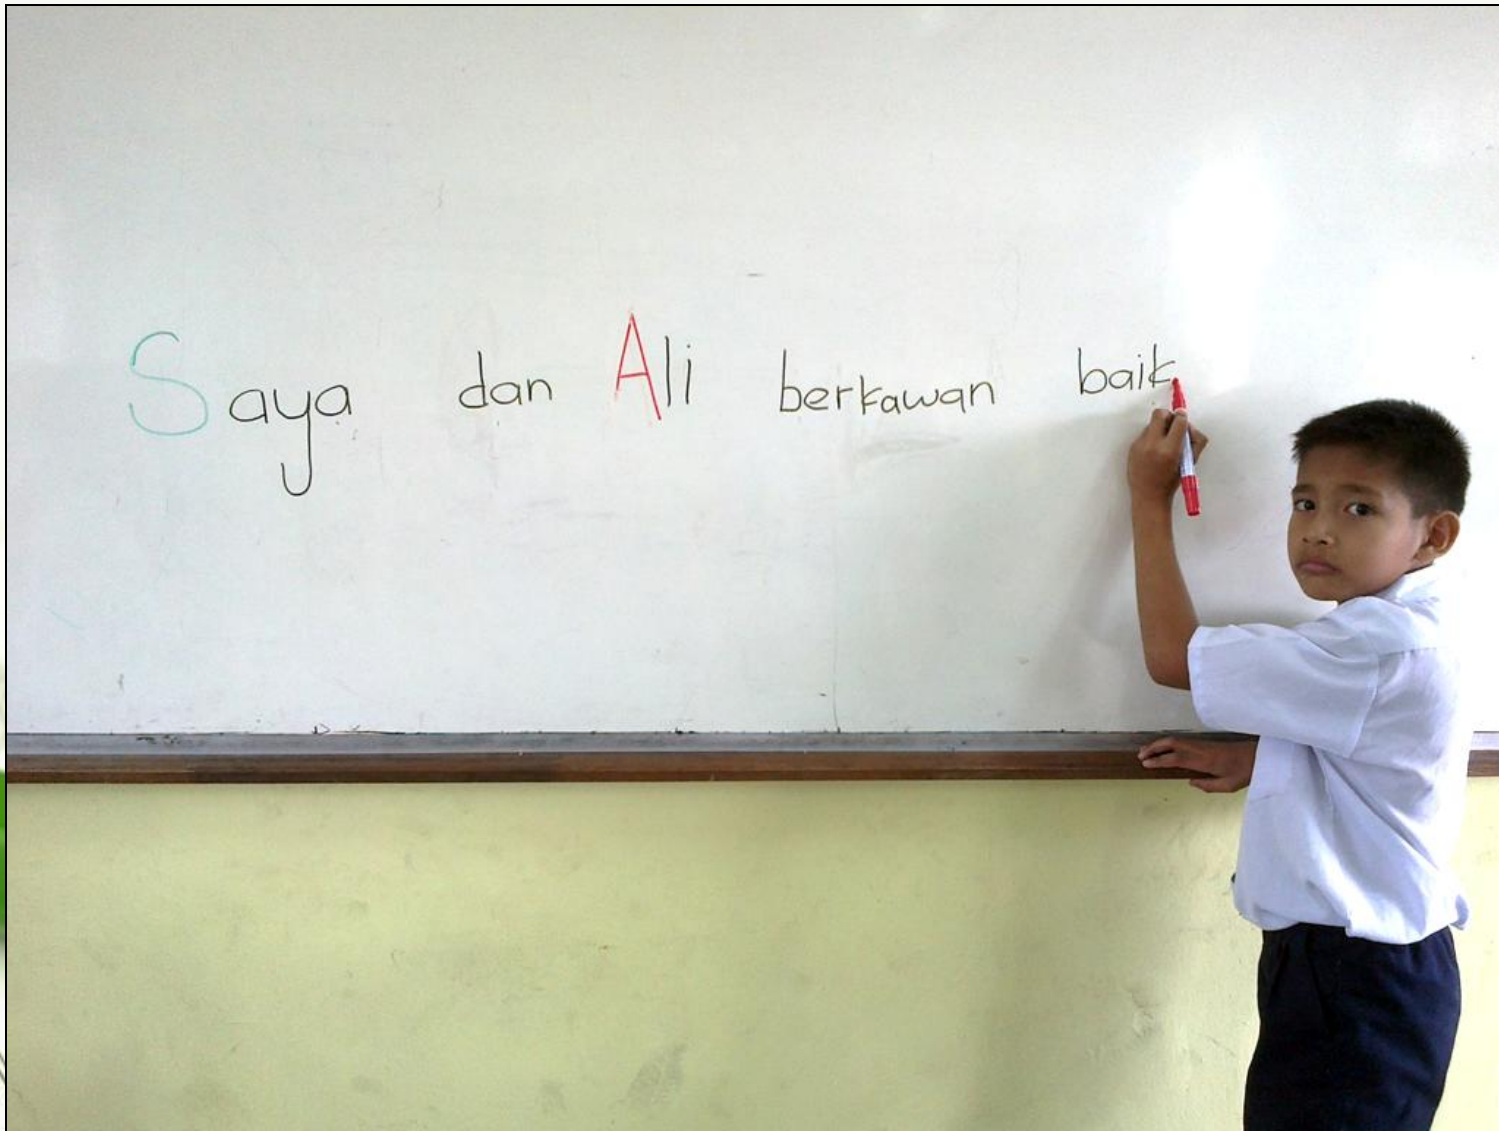 Saya dan Ali berkawan baik